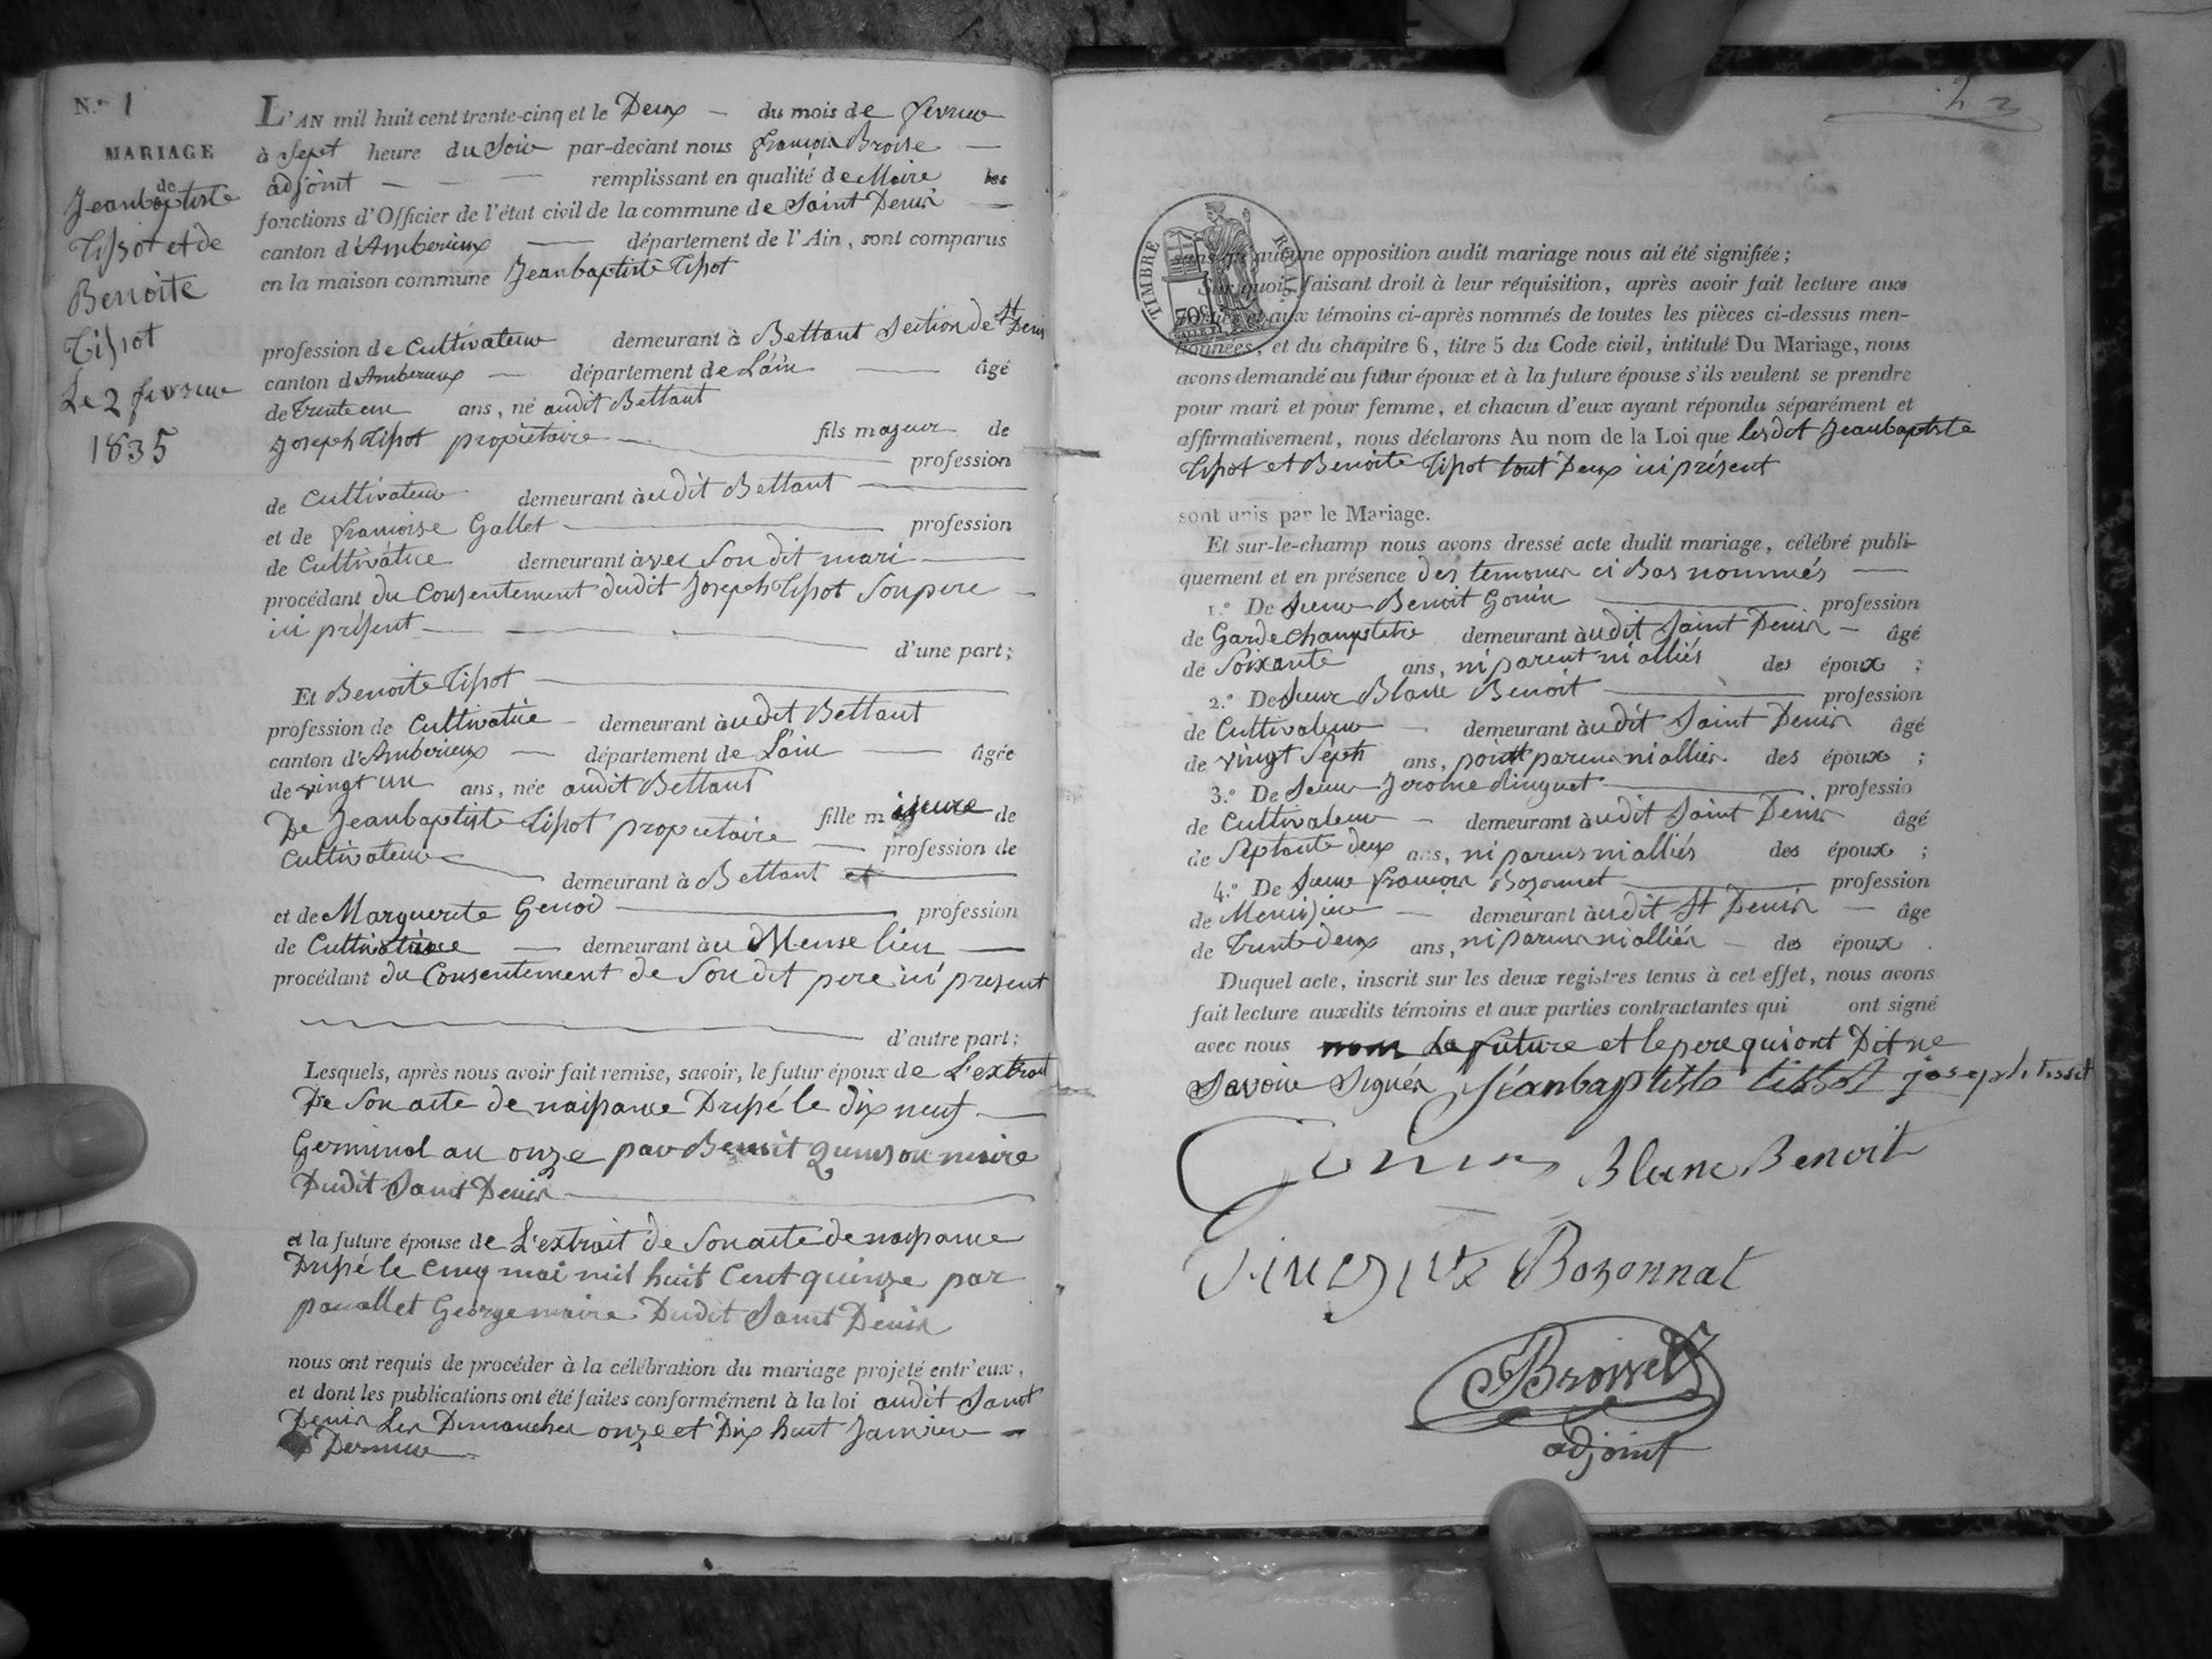 N.º 1
MARIAGE
de
Jeanbaptiste
Tissot et de
Benoite
Tissot
Le 2 fevrier
1835
L'AN mil huit cent trente-cinq et le Deux du mois de fevrier
à Sept heure du Soir par-devant nous françois Broise
adjoint remplissant en qualité de Maire les
fonctions d'Officier de l'état civil de la commune de Saint Denis
canton d'Amberieux département de l'Ain, sont comparus
en la maison commune Jeanbaptiste Tissot
profession de Cultivateur demeurant à Bettant Section de St Denis
canton d'Amberieux département de L'ain âgé
de Trente un ans, né audit Bettant
Joseph Tissot propriétaire fils majeur de
profession
de Cultivateur demeurant àudit Bettant
et de françoise Gallet profession
de Cultivatrice demeurant àvec Son dit mari
procédant du Consentement dudit Joseph Tissot Son pere
ici présent
d'une part;
Et Benoite Tissot
profession de Cultivatrice demeurant àudit Bettant
canton d'Amberieux département de L'ain âgée
de vingt un ans, née audit Bettant
De Jeanbaptiste Tissot propriétaire fille majeure de
Cultivateur profession de
demeurant à Bettant et
et de Marguerite Genod profession
de Cultivatrice demeurant àu Meme lieu
procédant du Consentement de Son dit pere ici present
d'autre part;
Lesquels, après nous avoir fait remise, savoir, le futur époux de L'extrait
De Son acte de naissance Dressé le dix neuf
Germinal an onze par Benoit Quinson maire
Dudit Saint Denis
et la future épouse de L'extrait de Son acte de naissance
Dressé le Cinq mai mil huit Cent quinze par
George maire Dudit Saint Denis
nous ont requis de procéder à la célébration du mariage projeté entr'eux,
et dont les publications ont été faites conformément à la loi audit Saint
Denis Les Dimanches onze et Dix huit Janvier
Dernier
2
sans qu'aucune opposition audit mariage nous ait été signifiée;
TIMBRE ROYAL
70
Sur quoi, faisant droit à leur réquisition, après avoir fait lecture aux
parties et aux témoins ci-après nommés de toutes les pièces ci-dessus men-
tionnées, et du chapitre 6, titre 5 du Code civil, intitulé Du Mariage, nous
avons demandé au futur époux et à la future épouse s'ils veulent se prendre
pour mari et pour femme, et chacun d'eux ayant répondu séparément et
affirmativement, nous déclarons Au nom de la Loi que lesdit Jeanbaptiste
Tissot et Benoite Tissot tout Deux ici présent
sont unis par le Mariage.
Et sur-le-champ nous avons dressé acte dudit mariage, célébré publi-
quement et en présence des temoins ci Bas nommés
1.º De Sieur Benoit Gonin profession
de Garde Champetre demeurant àudit Saint Denis âgé
de Soixante ans, ni parent ni alliés des époux ;
2.º De Sieur Blanc Benoit profession
de Cultivateur demeurant àudit Saint Denis âgé
de vingt Sept ans, point parens ni alliés des époux ;
3.º De Sieur Jerome dinguet professio
de Cultivateur demeurant àudit Saint Denis âgé
de Septante deux ans, ni parens ni alliés des époux ;
4.º De Sieur françois Bozonnet profession
de Menuisier demeurant àudit St Denis âge
de Trente deux ans, ni parens ni alliés des époux .
Duquel acte, inscrit sur les deux registres tenus à cet effet, nous avons
fait lecture auxdits témoins et aux parties contractantes qui ont signé
avec nous non La future et le pere qui ont Dit ne
Savoir Signés Jéanbaptiste tissot joseph tissot
Gonin Blanc Benoit
Bozonnat
Broisset
adjoint